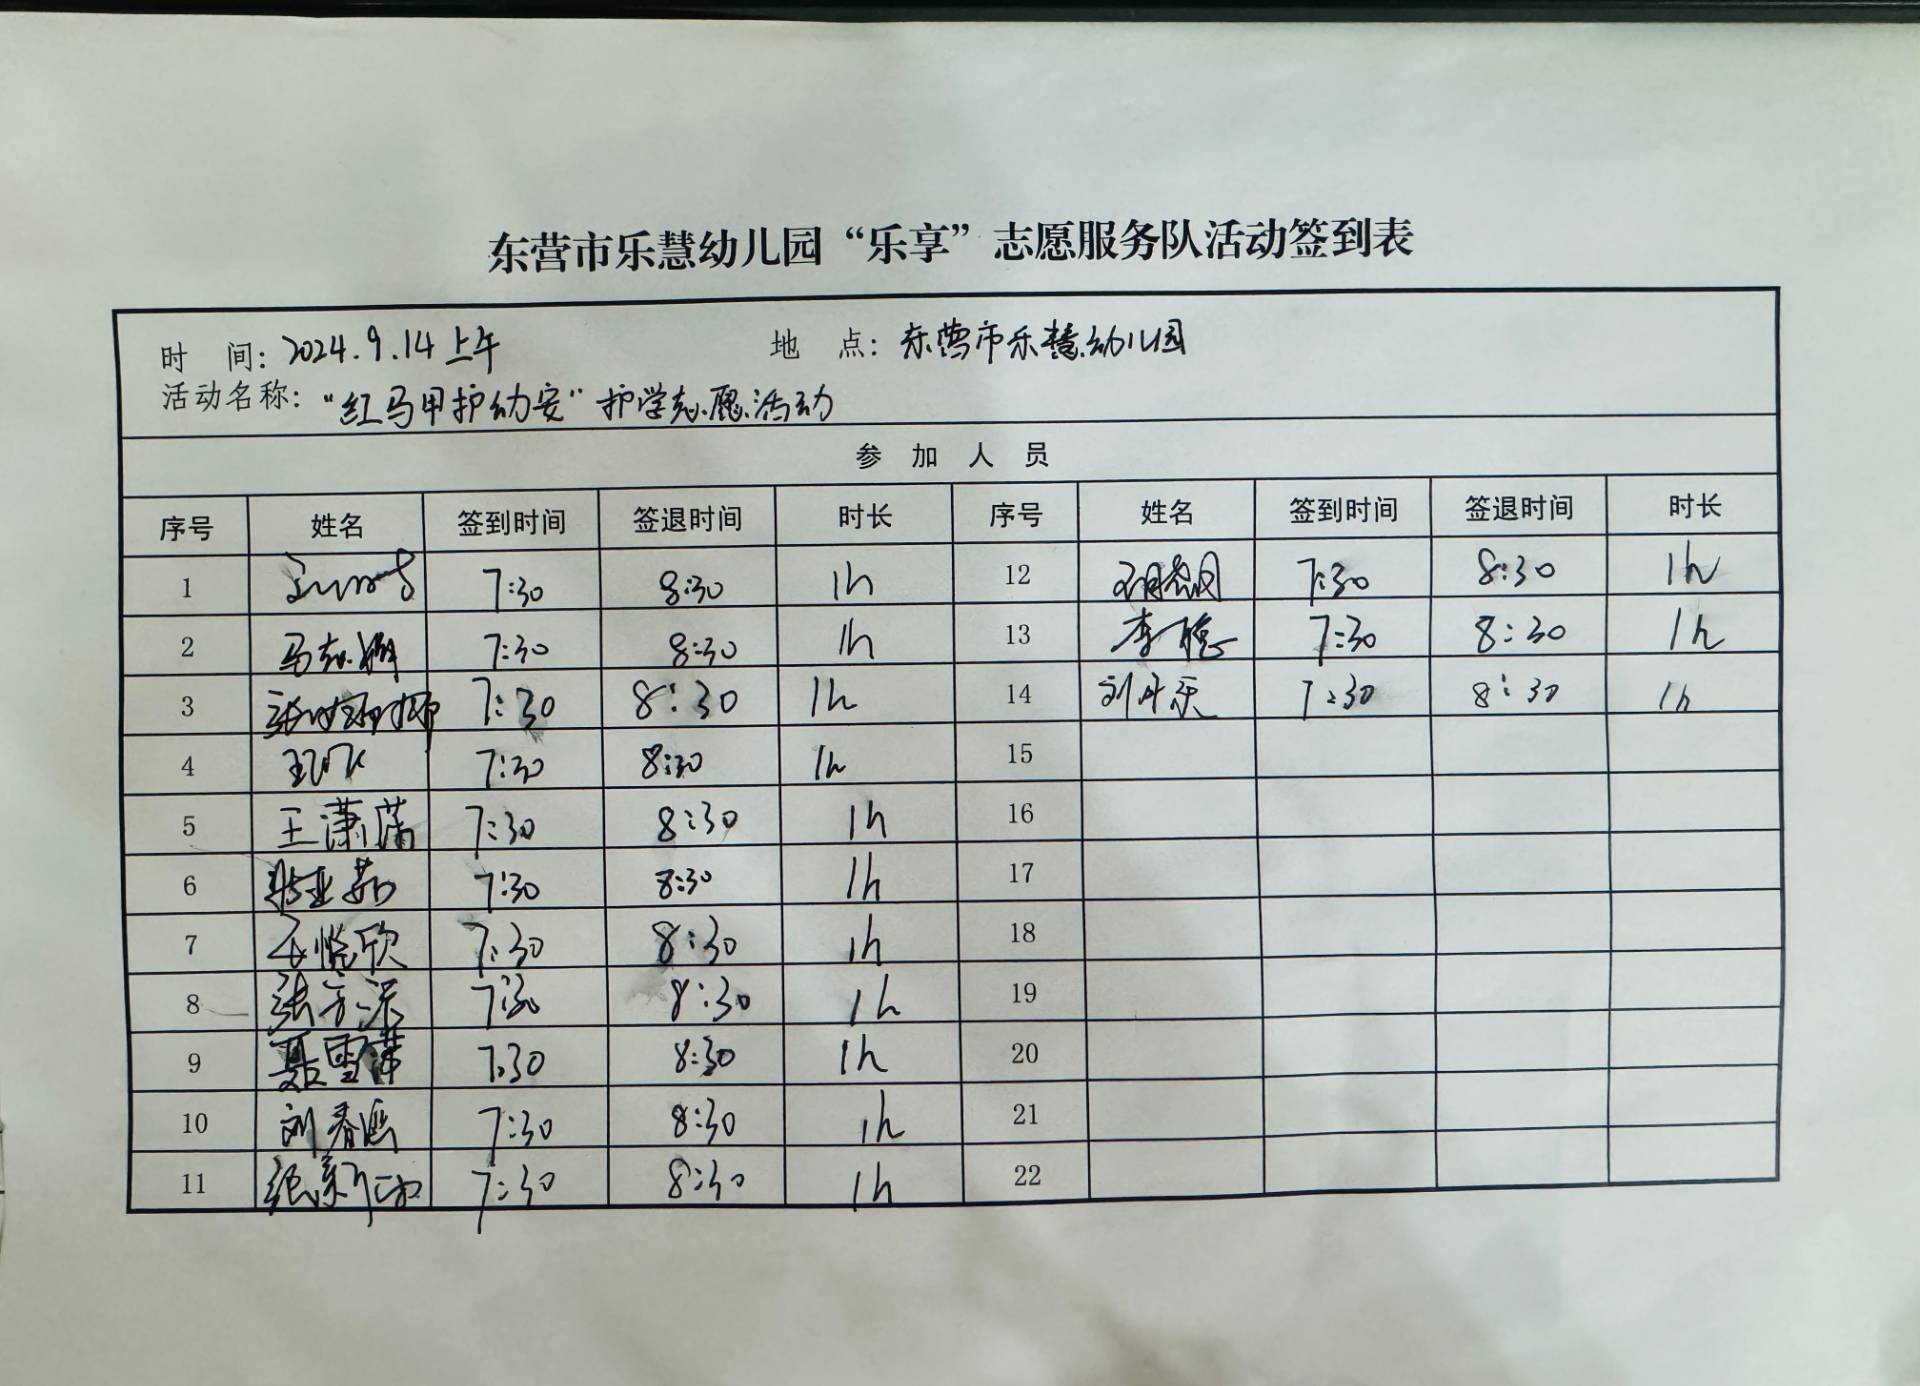 东营市乐慧幼儿园“乐享”志愿服务队活动签到表
时 间：2024.9.14上午 地 点：东营市乐慧幼儿园
活动名称：“红马甲护幼安”护学志愿活动
参 加 人 员
序号 姓名 签到时间 签退时间 时长 序号 姓名 签到时间 签退时间 时长
1 7:30 8:30 1h 12 7:30 8:30 1h
2 7:30 8:30 1h 13 李聪 7:30 8:30 1h
3 7:30 8:30 1h 14 7:30 8:30 1h
4 7:30 8:30 1h 15
5 王潇潇 7:30 8:30 1h 16
6 7:30 8:30 1h 17
7 7:30 8:30 1h 18
8 7:30 8:30 1h 19
9 聂雪萍 7:30 8:30 1h 20
10 7:30 8:30 1h 21
11 7:30 8:30 1h 22